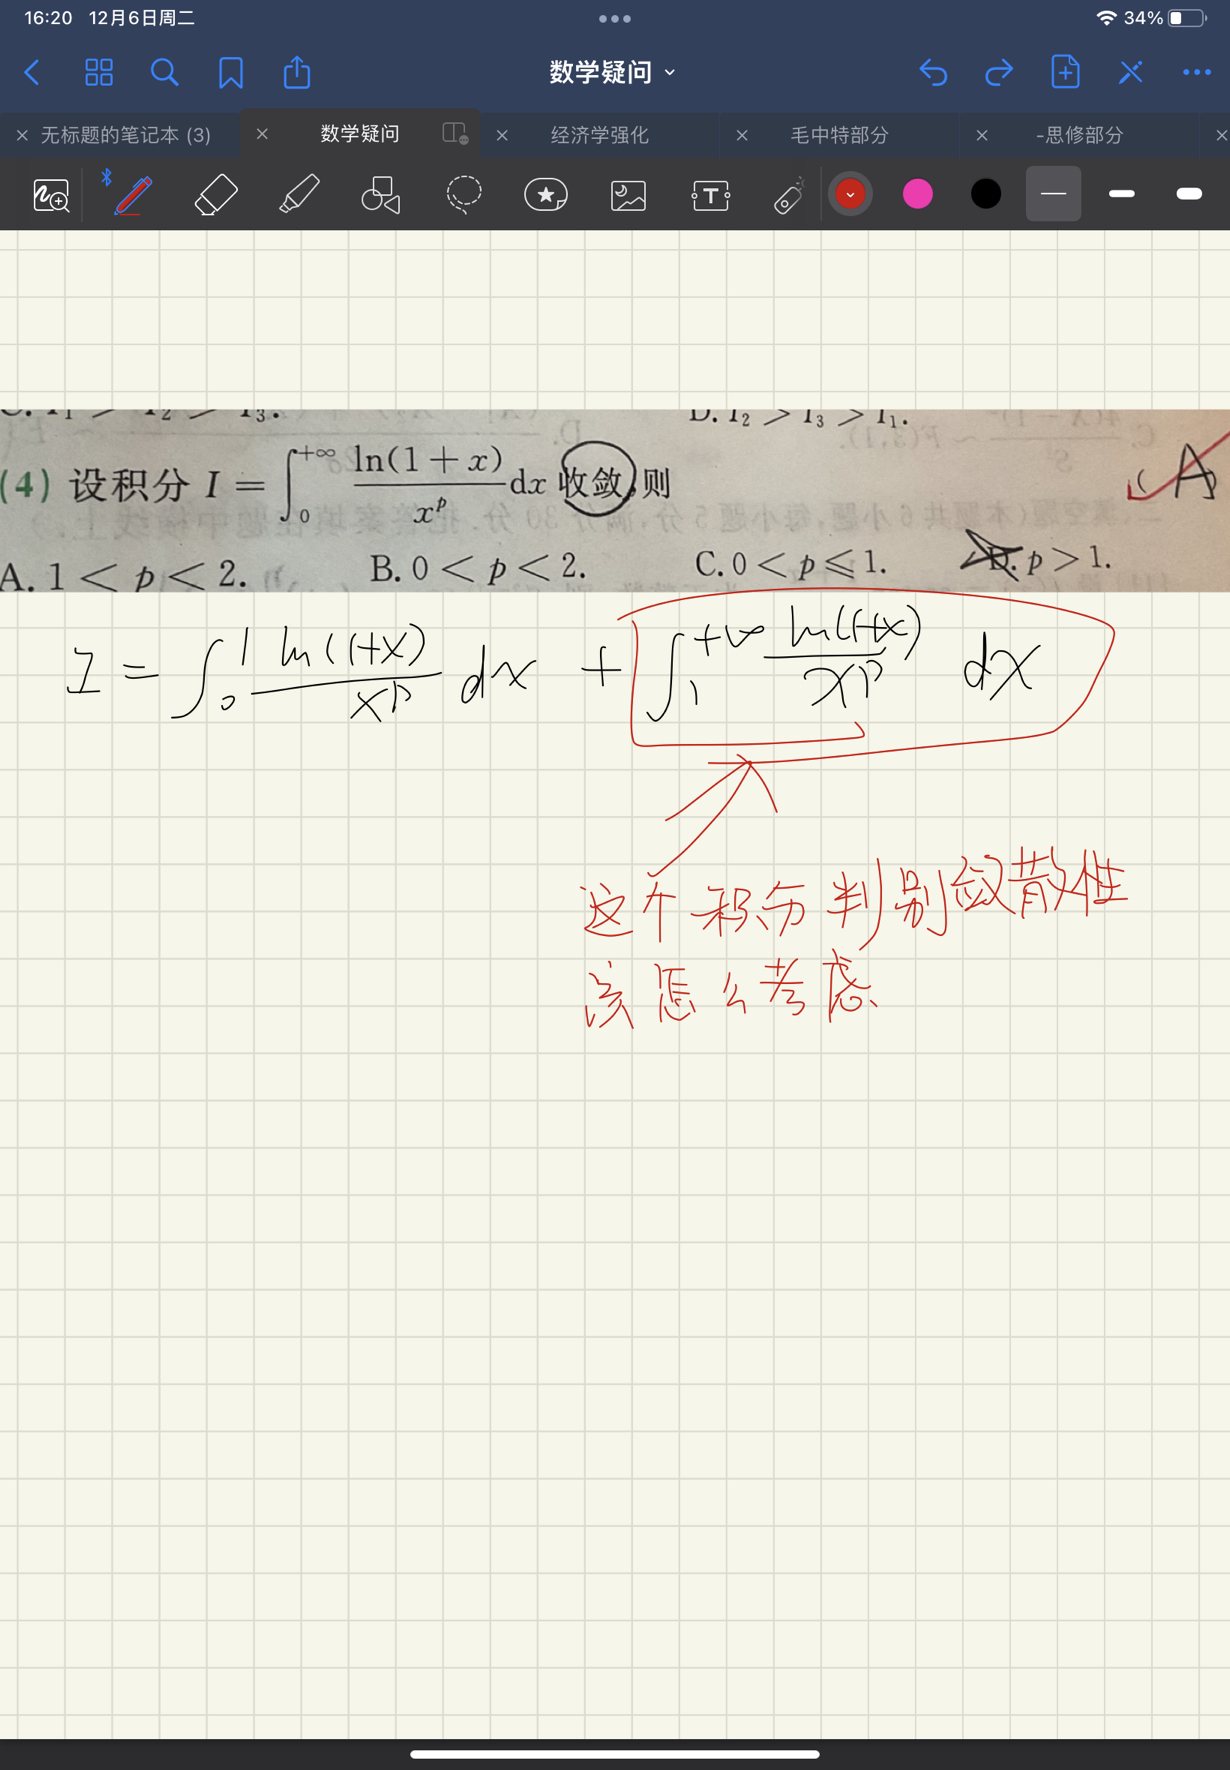 16:20 12月6日周二
34%
数学疑问
无标题的笔记本 (3)
数学疑问
经济学强化
毛中特部分
-思修部分
D. I₂ > I₃ > I₁.
(4) 设积分 I = ∫₀^{+∞} ln(1 + x)/x^p dx 收敛,则 ( A )
A. 1 < p < 2. B. 0 < p < 2. C. 0 < p ⩽ 1. D. p > 1.
I = ∫₀¹ ln(1+x)/x^p dx + ∫₁^{+∞} ln(1+x)/x^p dx
这个积分判别敛散性
该怎么考虑